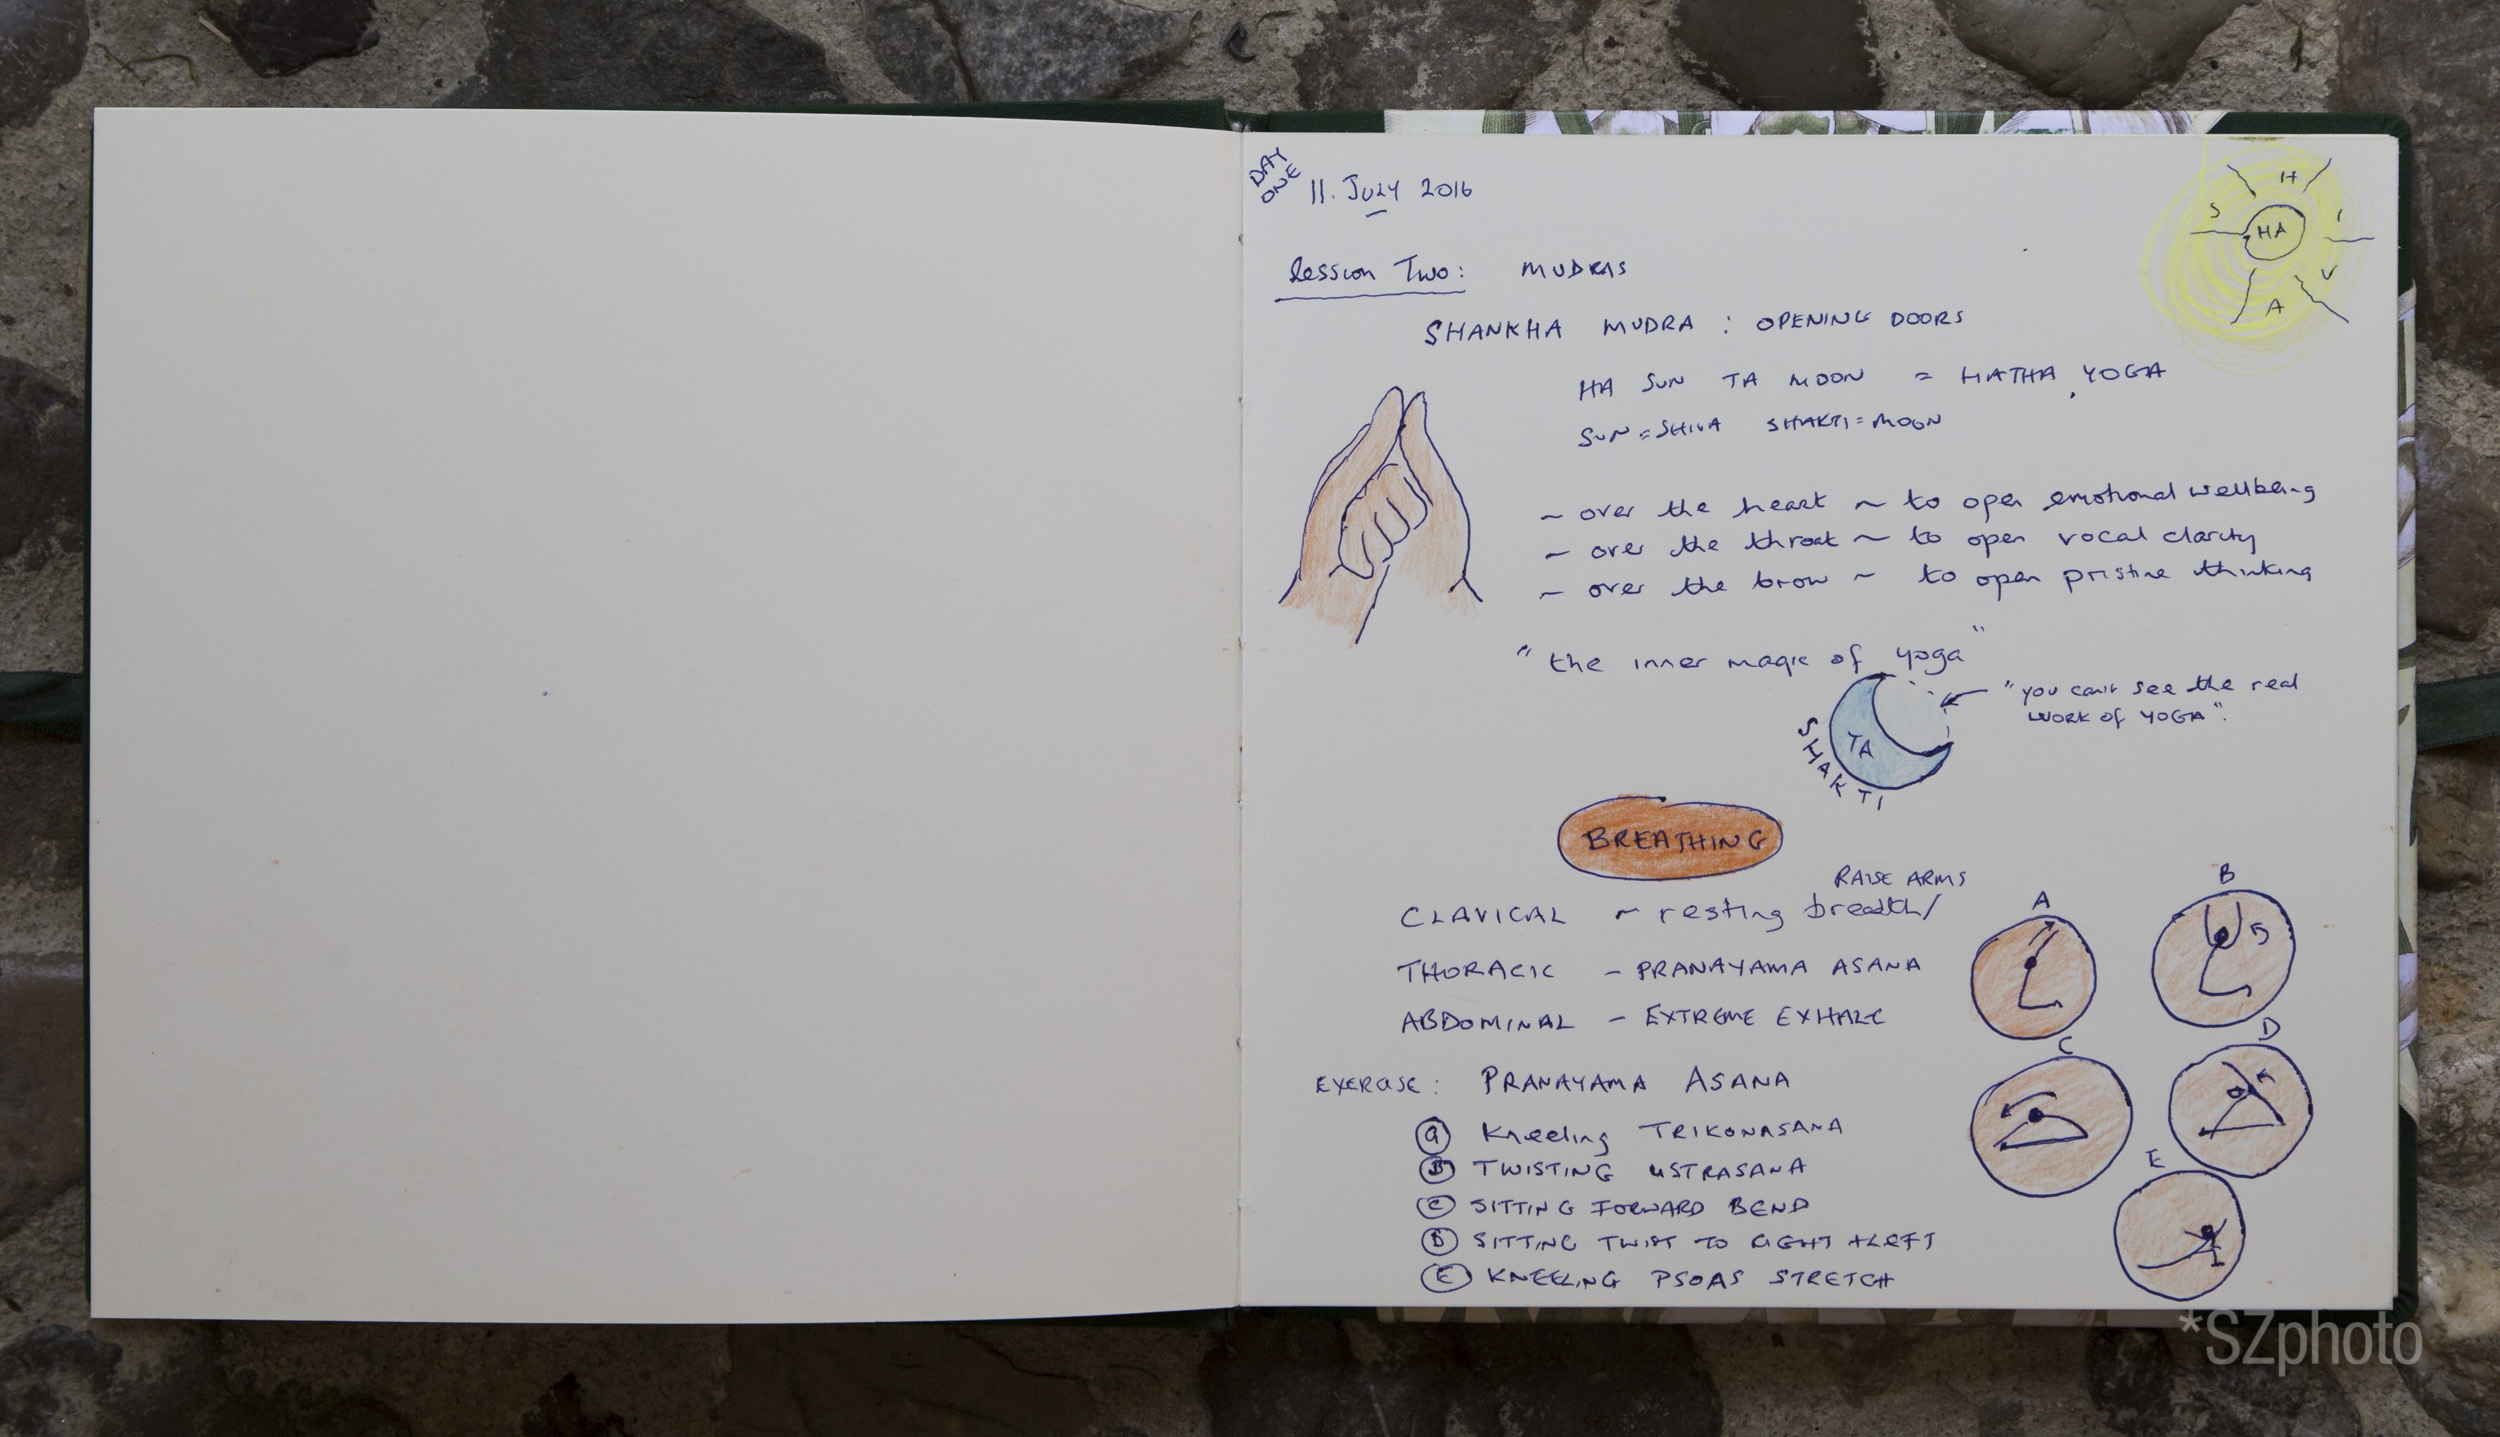 DAY
ONE
11. JULY 2016
S H I V A
HA
Session Two: MUDRAS
SHANKHA MUDRA : OPENING DOORS
HA SUN TA MOON = HATHA YOGA
SUN = SHIVA SHAKTI = MOON
~ over the heart ~ to open emotional wellbeing
~ over the throat ~ to open vocal clarity
~ over the brow ~ to open pristine thinking
"the inner magic of yoga"
"you can't see the real
WORK OF YOGA".
TA
SHAKTI
BREATHING
RAISE ARMS
CLAVICAL ~ resting breath/
THORACIC - PRANAYAMA ASANA
ABDOMINAL - EXTREME EXHALE
A
B
C
D
E
EXERCISE: PRANAYAMA ASANA
a Kneeling TRIKONASANA
B TWISTING USTRASANA
C SITTING FORWARD BEND
D SITTING TWIST TO RIGHT + LEFT
E KNEELING PSOAS STRETCH
*SZphoto